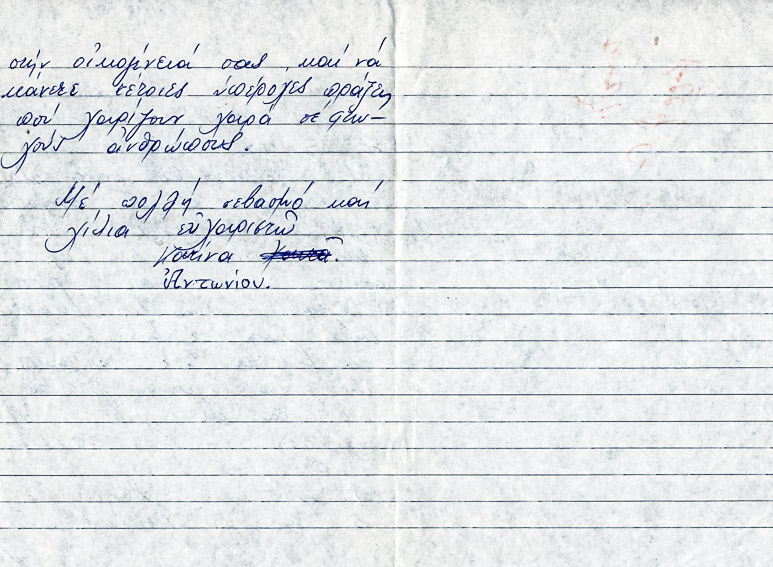 στήν οἰκογένειά σας καί νά
κάνετε τέτοιες ὑπέροχες πράξεις
πού χαρίζουν χαρά σέ φτω-
χούς ἀνθρώπους.
Μέ πολλή σεβασμό καί
χίλια εὐχαριστῶ
Κατίνα
Ἀντωνίου.